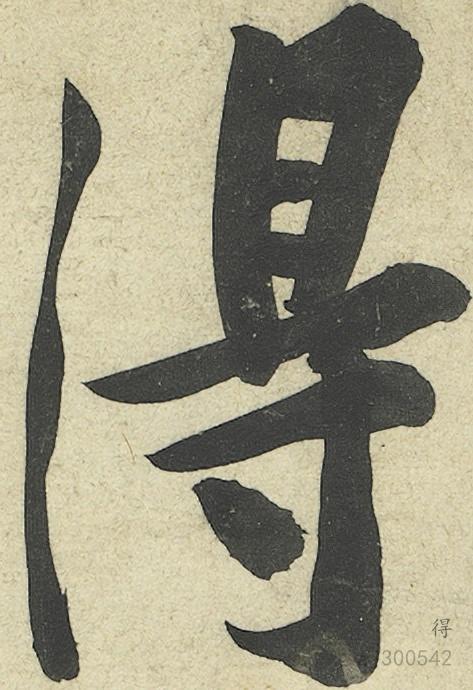 得
得
300542